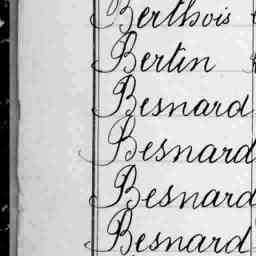 Berthois
Bertin
Besnard
Besnard
Besnard
Besnard